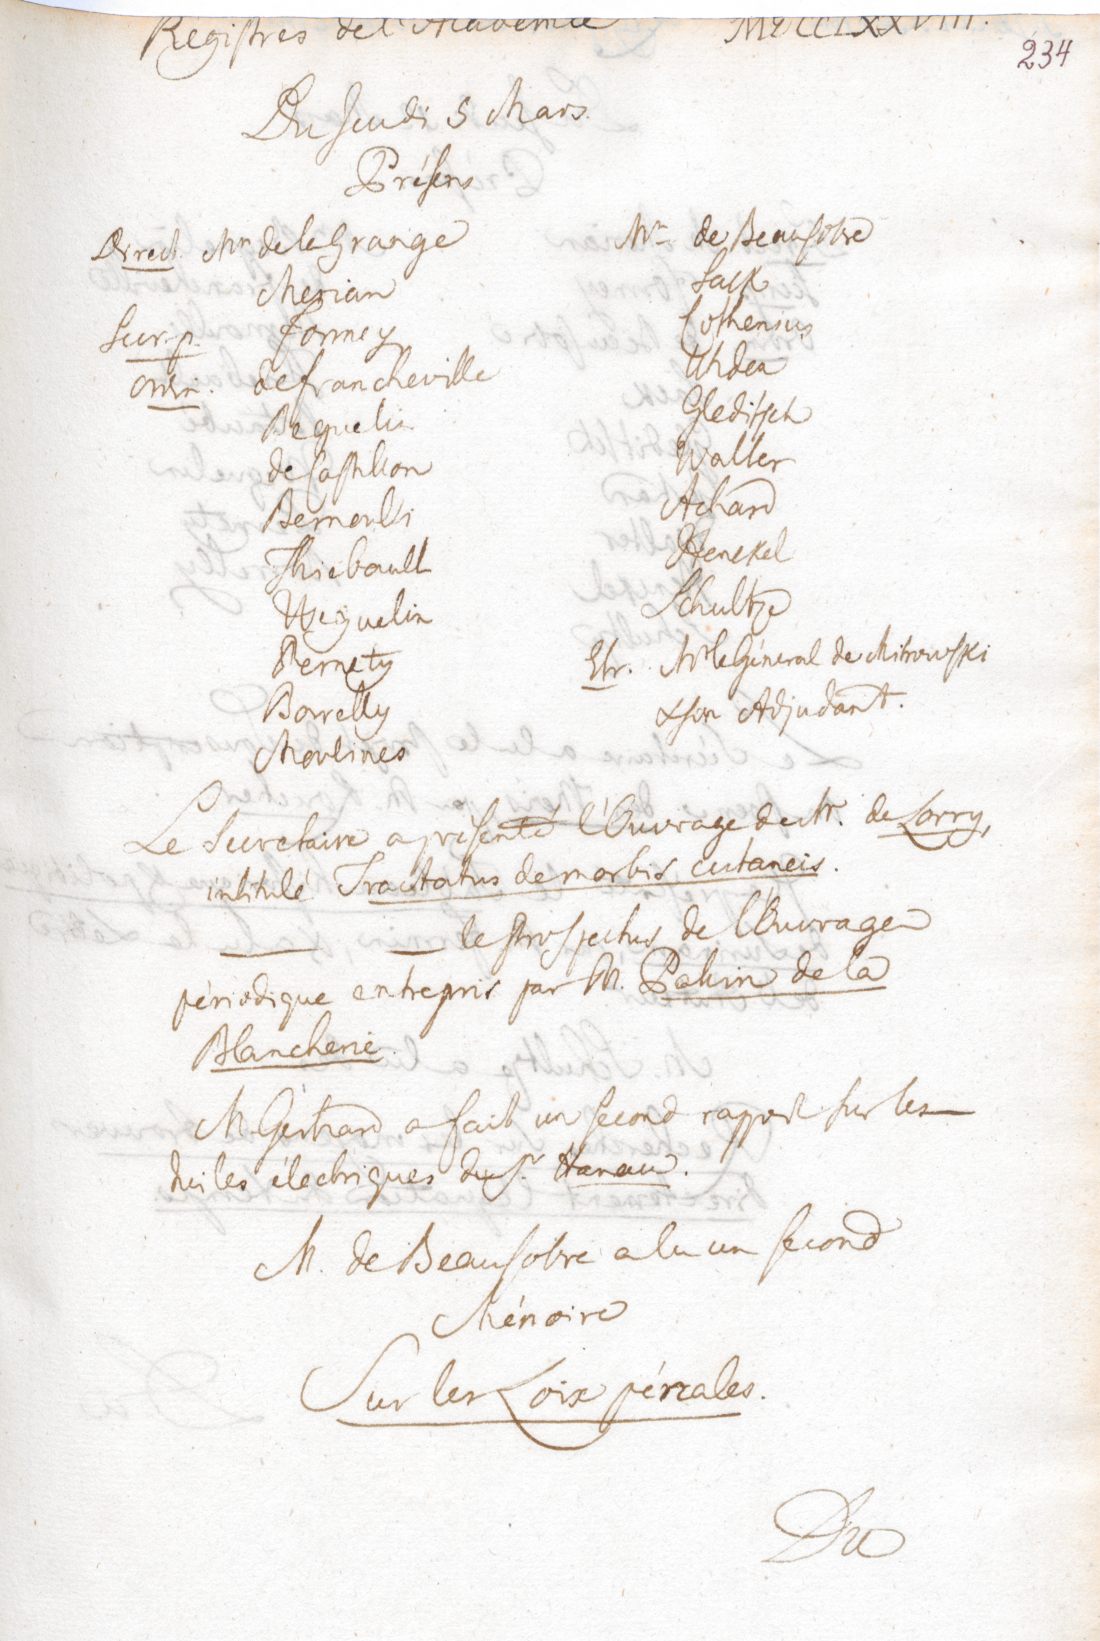 Registres de l'Academie MDCCLXXVIII.
234
Du Jeudi 5 Mars.
Présens
Direct. Mrs. de la Grange
Merian
Secr. p. Formey
Ordin. de Francheville
Beguelin
de Castillon
Bernoulli
Thiebault
Weguelin
Pernety
Borrelly
Moulines
Mrs. de Beausobre
Sack
Cothenius
Uhden
Gleditsch
Walter
Achard
Henckel
Schultze
Etr. Mr le Géneral de Mitrowski
& son Adjudant.
Le Secretaire a présenté l'Ouvrage de Mr. de Lorry,
intitulé Tractatus de morbis cutaneis.
le Prospectus de l'Ouvrage
périodique entrepris par M. Pahin de la
Blancherie.
M. Gerhard a fait un second rapport sur les
huiles électriques du Sr. Hanau.
M. de Beausobre a lu un second
Mémoire
Sur les Loix pénales.
Du